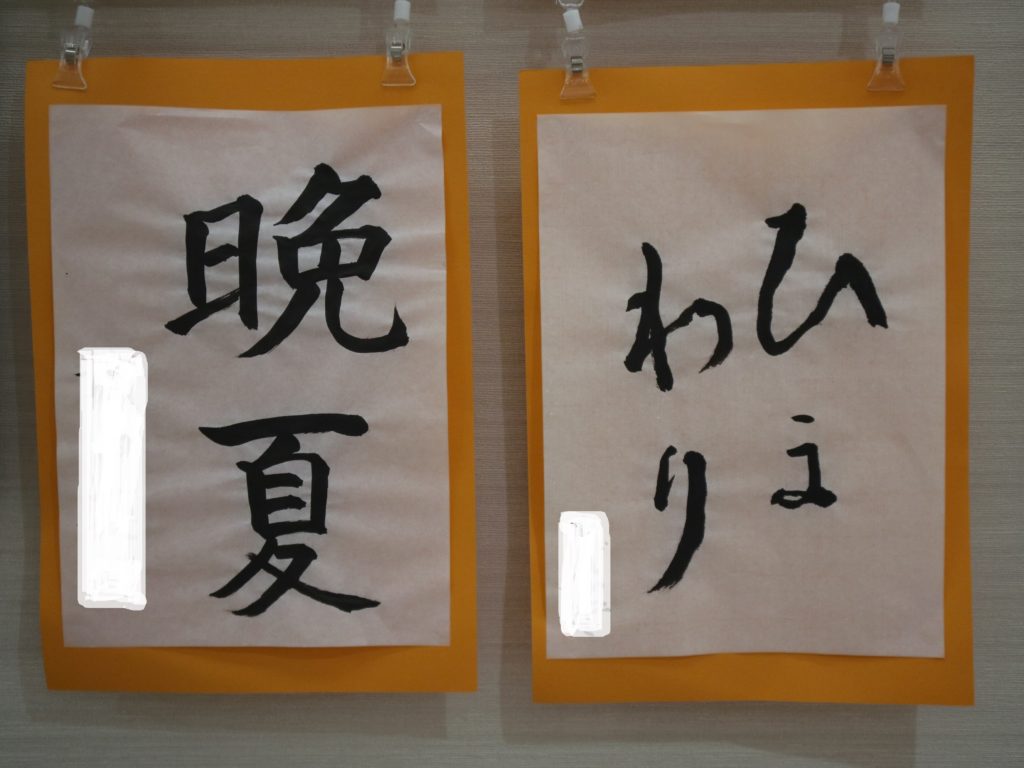 晩夏
ひま
わり